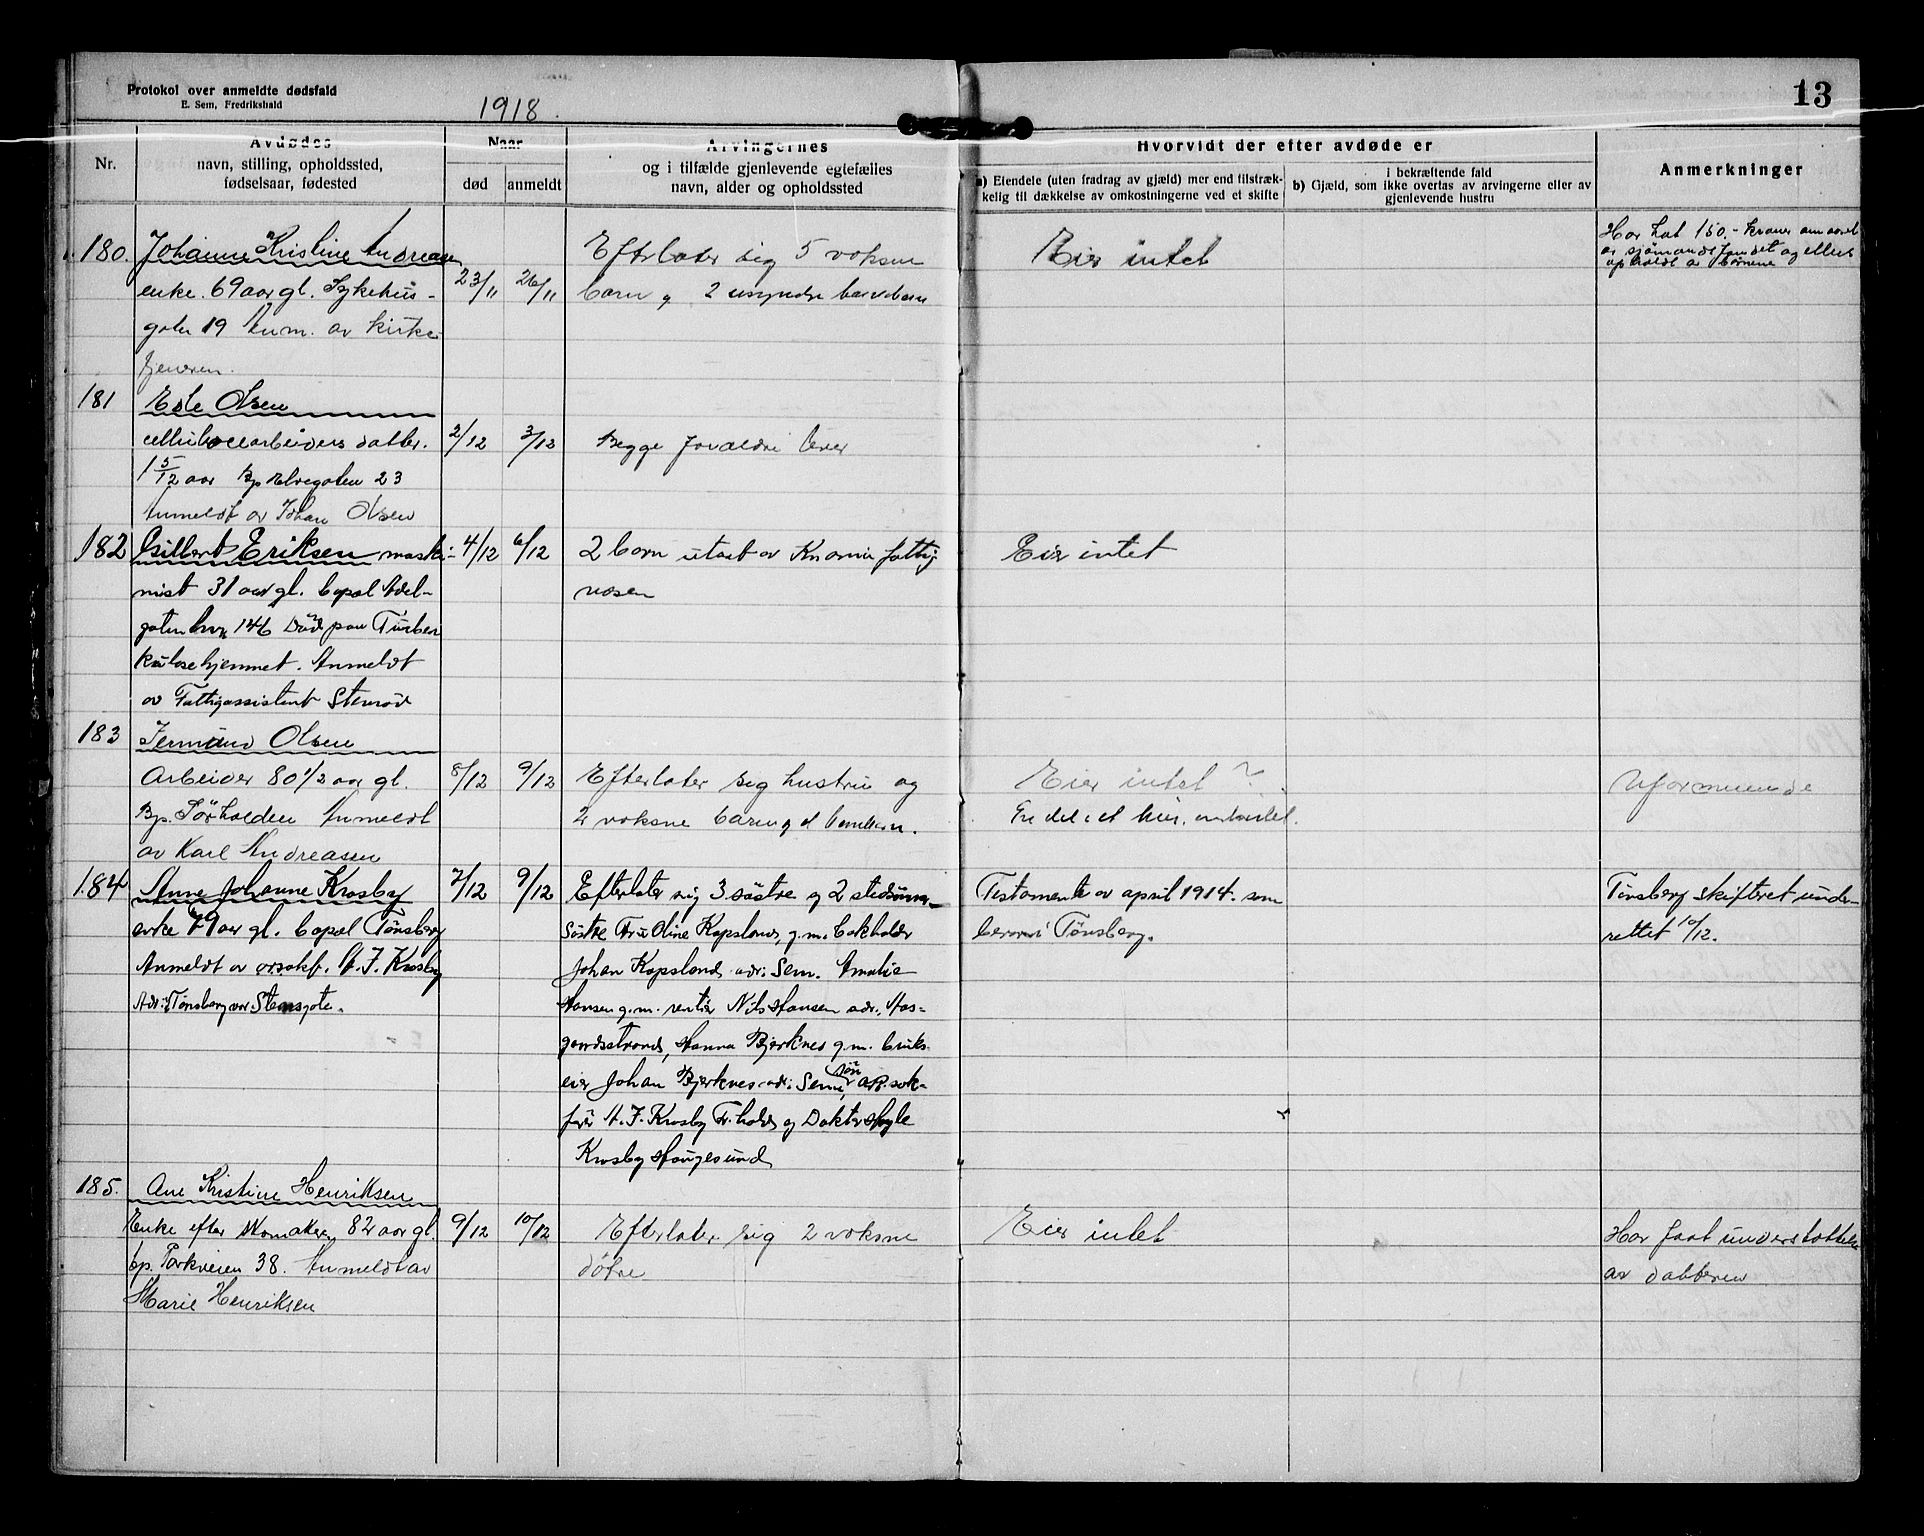 Protokol over anmeldte dødsfald
E. Sem, Fredrikshald
1918.
13
Nr.
Avdødes
navn, stilling, opholdssted,
fødselsaar, fødested
Naar
død
anmeldt
Arvingernes
og i tilfælde gjenlevende egtefælles
navn, alder og opholdssted
Hvorvidt der efter avdøde er
a) Eiendele (uten fradrag av gjæld) mer end tilstræk-
kelig til dækkelse av omkostningerne ved et skifte
i bekræftende fald
b) Gjæld, som ikke overtas av arvingerne eller av
gjenlevende hustru
Anmerkninger
180. Johanne Kristine Andreasen
enke. 69 aar gl. Sykehus-
gaten 19 Anm. av kirke-
tjeneren.
23/11 26/11
Efterlater sig 5 voksne
barn og 2 umyndre barnebarn
Eier intet
Har hat 150.- kroner om aaret
av sjömandsfondet og ellers
opholdt av börnene
181 Edle Olsen
cellulosearbeiders datter.
1 5/12 aar Bp Elvegaten 23
Anmeldt av Johan Olsen
2/12 3/12
Begge forældre lever
182 Gilbert Eriksen maski-
nist 31 aar gl. bopæl Adel-
gaten 146 Död paa Tuber
kulosehjemmet. Anmeldt
av Fattigassistent Stenröd
4/12 6/12
2 barn utsat av fattig
væsen
Eier intet
183 Jermund Olsen
Arbeider 80 1/2 aar gl.
Bp. Sörhalden Anmeldt
av Karl Andreasen
8/12 9/12
Efterlater sig hustru og
2 voksne barn og et barnebarn.
Eier intet ?
En del i et hus,
Uformuende
184 Anne Johanne Krosby
enke 79 aar gl. bopæl Tønsberg
Anmeldt av orsakf. H. F. Krosby
Adr: Tønsberg Stensgate.
7/12 9/12
Efterlater sig 3 söstre og 2 stedsönner
Söstre Fru Oline Kapsland, g.m. bokholder
Johan Kapsland adr: Sem. Amalie
Hansen g.m. rentier Nils Hansen adr: Aas-
gaardsstrand, Hanna Bjerknes g.m. bruks-
eier Johan Bjerknes adr: Sem, sön o.r. sak-
förer H. F. Krosby Fr.hald og Doktor Hagle
Krosby Haugesund
Testamente av april 1914. som
beror i Tønsberg.
Tønsberg skifteret under-
rettet 10/12.
185. Ane Kristine Henriksen
Enke efter skomaker, 82 aar gl.
bp. Parkveien 38. Anmeldt av
Marie Henriksen
9/12 10/12
Efterlater sig 2 voksne
døtre
Eier intet
Har faat understöttelse
av datteren